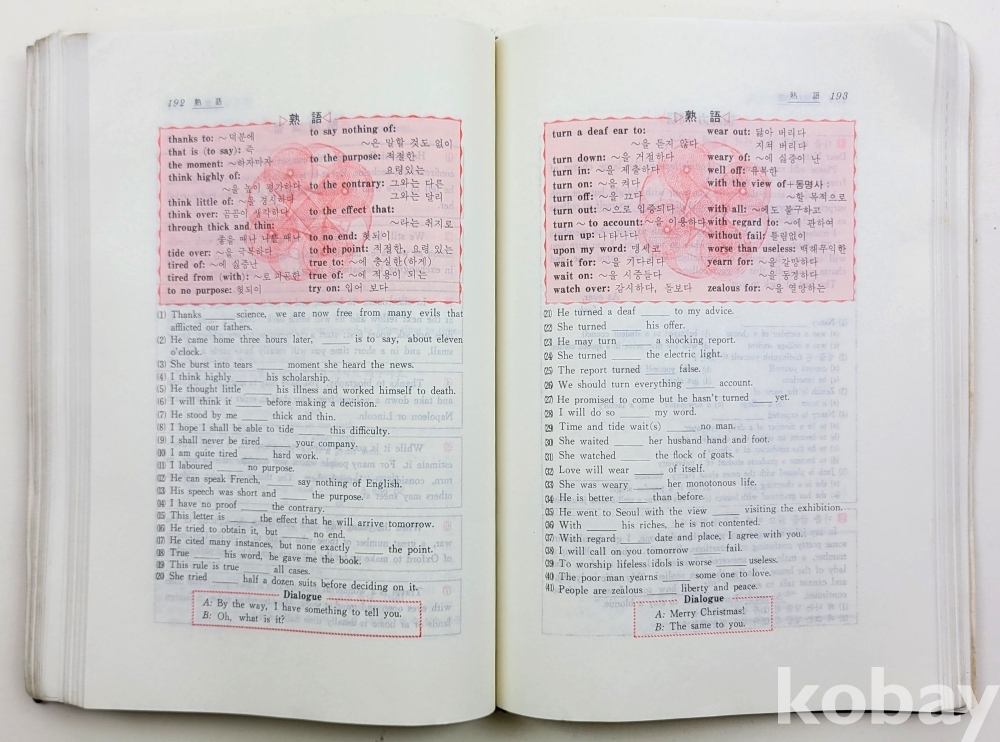 192 熟 語
▷熟 語◁
thanks to: ～덕분에
that is (to say): 즉
the moment: ～하자마자
think highly of:
～을 높이 평가하다
think little of: ～을 경시하다
think over: 곰곰이 생각하다
through thick and thin:
좋을 때나 나쁠 때나
tide over: ～을 극복하다
tired of: ～에 싫증난
tired from (with): ～로 피곤한
to no purpose: 헛되이
to say nothing of:
～은 말할 것도 없이
to the purpose: 적절한
요령있는
to the contrary: 그와는 다른
그와는 달리
to the effect that:
～라는 취지로
to no end: 헛되이
to the point: 적절한, 요령 있는
true to: ～에 충실한(하게)
true of: ～에 적용이 되는
try on: 입어 보다
(1) Thanks ____ science, we are now free from many evils that
afflicted our fathers.
(2) He came home three hours later, ____ is to say, about eleven
o'clock.
(3) She burst into tears ____ moment she heard the news.
(4) I think highly ____ his scholarship.
(5) He thought little ____ his illness and worked himself to death.
(6) I will think it ____ before making a decision.
(7) He stood by me ____ thick and thin.
(8) I hope I shall be able to tide ____ this difficulty.
(9) I shall never be tired ____ your company.
(10) I am quite tired ____ hard work.
(11) I laboured ____ no purpose.
(12) He can speak French, ____ say nothing of English.
(13) His speech was short and ____ the purpose.
(14) I have no proof ____ the contrary.
(15) This letter is ____ the effect that he will arrive tomorrow.
(16) He tried to obtain it, but ____ no end.
(17) He cited many instances, but none exactly ____ the point.
(18) True ____ his word, he gave me the book.
(19) This rule is true ____ all cases.
(20) She tried ____ half a dozen suits before deciding on it.
Dialogue
A: By the way, I have something to tell you.
B: Oh, what is it?
熟 語 193
▷熟 語◁
turn a deaf ear to:
～을 듣지 않다
turn down: ～을 거절하다
turn in: ～을 제출하다
turn on: ～을 켜다
turn off: ～을 끄다
turn out: ～으로 입증되다
turn ～ to account: ～을 이용하다
turn up: 나타나다
upon my word: 맹세코
wait for: ～을 기다리다
wait on: ～을 시중들다
watch over: 감시하다, 돌보다
wear out: 닳아 버리다
지쳐 버리다
weary of: ～에 싫증이 난
well off: 유복한
with the view of+동명사:
～할 목적으로
with all: ～에도 불구하고
with regard to: ～에 관하여
without fail: 틀림없이
worse than useless: 백해무익한
yearn for: ～을 갈망하다
～을 동경하다
zealous for: ～을 열망하는
(21) He turned a deaf ____ to my advice.
(22) She turned ____ his offer.
(23) He may turn ____ a shocking report.
(24) She turned ____ the electric light.
(25) The report turned ____ false.
(26) We should turn everything ____ account.
(27) He promised to come but he hasn't turned ____ yet.
(28) I will do so ____ my word.
(29) Time and tide wait(s) ____ no man.
(30) She waited ____ her husband hand and foot.
(31) She watched ____ the flock of goats.
(32) Love will wear ____ of itself.
(33) She was weary ____ her monotonous life.
(34) He is better ____ than before.
(35) He went to Seoul with the view ____ visiting the exhibition.
(36) With ____ his riches, he is not contented.
(37) With regard ____ date and place, I agree with you.
(38) I will call on you tomorrow ____ fail.
(39) To worship lifeless idols is worse ____ useless.
(40) The poor man yearns ____ some one to love.
(41) People are zealous ____ liberty and peace.
Dialogue
A: Merry Christmas!
B: The same to you.
kobay